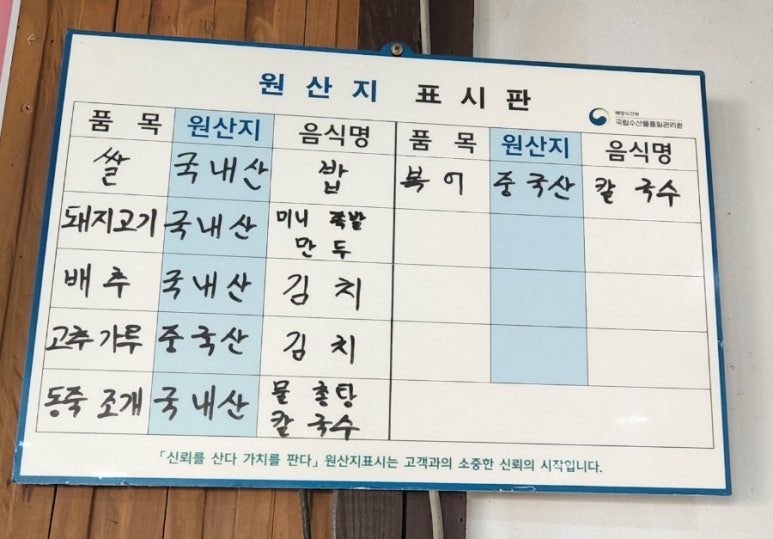 원산지 표시판
해양수산부
국립수산물품질관리원
품목 원산지 음식명 품목 원산지 음식명
쌀 국내산 밥 복어 중국산 칼국수
돼지고기 국내산 미니 족발
만두
배추 국내산 김치
고추가루 중국산 김치
동죽 조개 국내산 물총탕
칼국수
「신뢰를 산다 가치를 판다」 원산지표시는 고객과의 소중한 신뢰의 시작입니다.